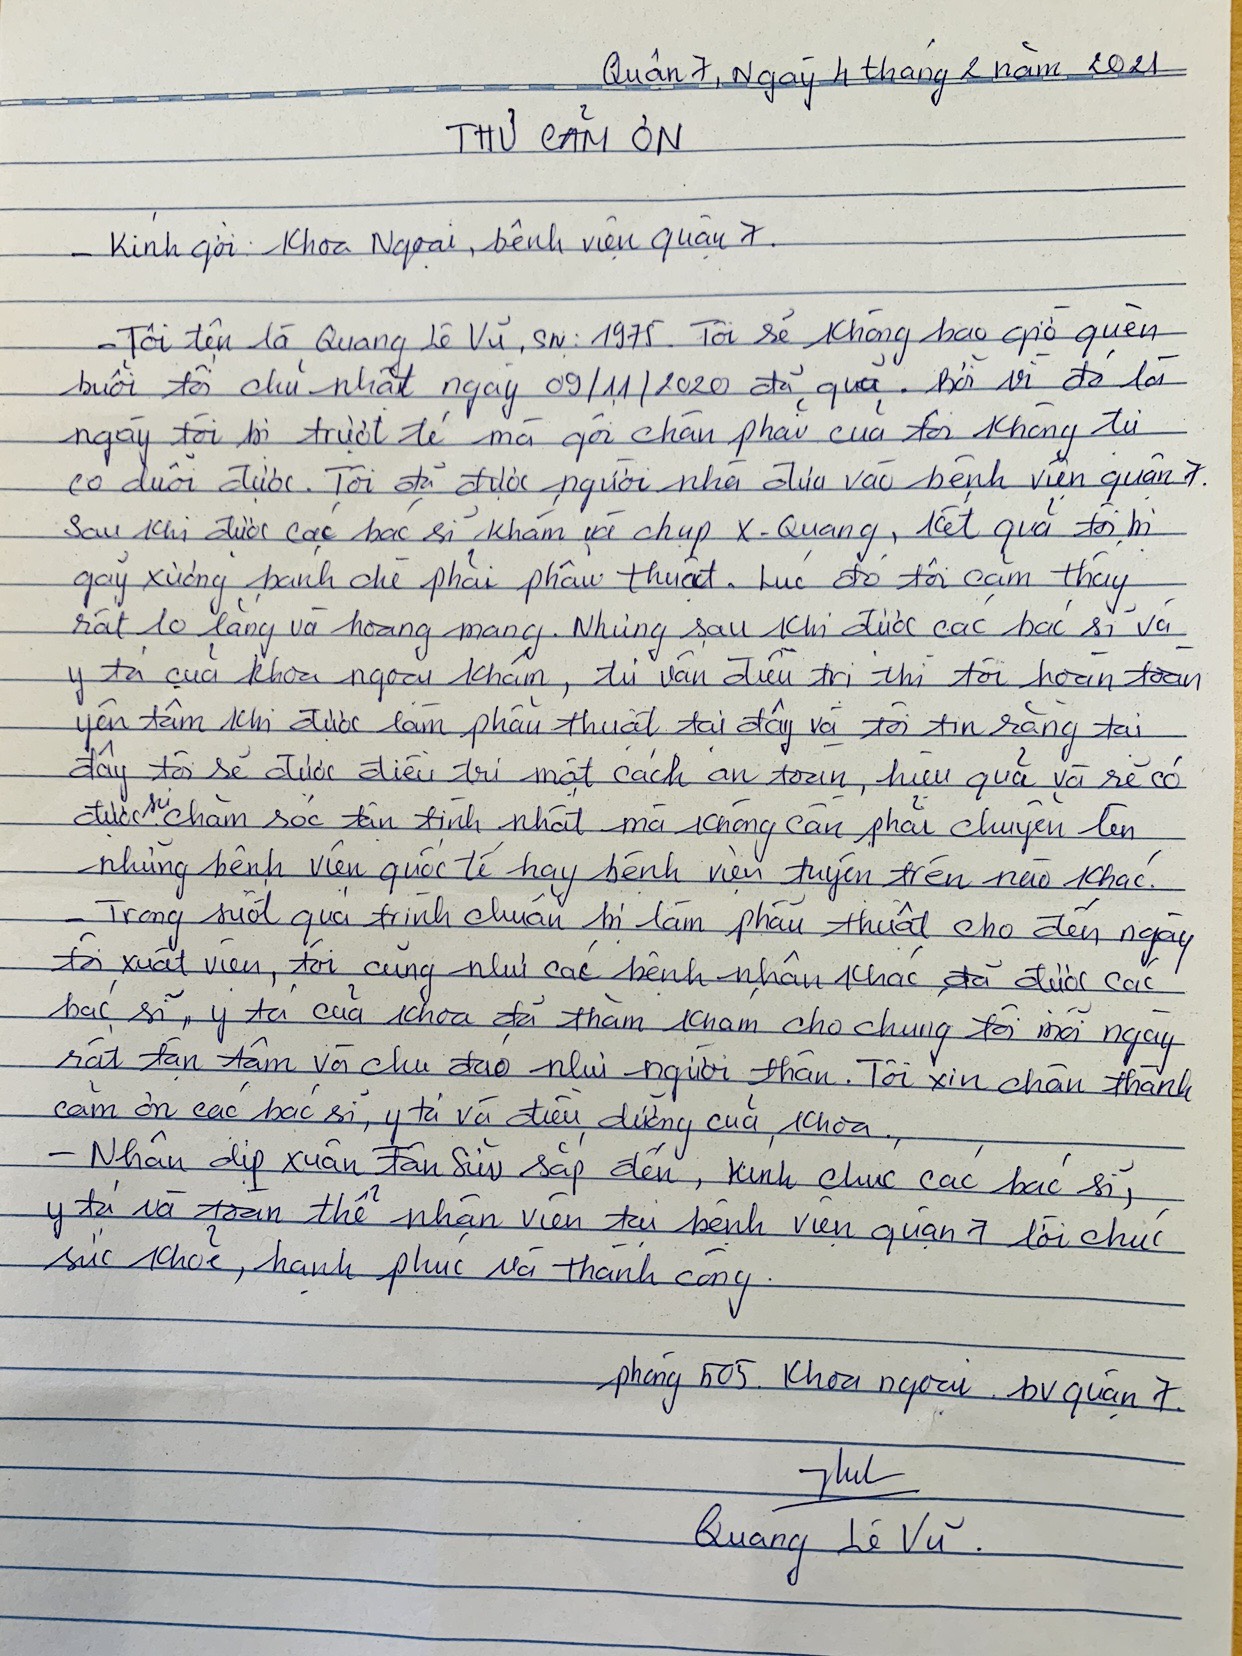 Quận 7, Ngày 4 tháng 2 năm 2021
THƯ CẢM ƠN
- Kính gởi: Khoa Ngoại, bệnh viện quận 7.
- Tôi tên là Quang Lê Vũ, SN: 1975. Tôi sẽ không bao giờ quên
buổi tối chủ nhật ngày 09/11/2020 đã qua. Bởi vì đó là
ngày tôi bị trượt té mà gối chân phải của tôi không tự
co duỗi được. Tôi đã được người nhà đưa vào bệnh viện quận 7.
Sau khi được các bác sĩ khám và chụp X-Quang, kết quả tôi bị
gãy xương bánh chè phải phẫu thuật. Lúc đó tôi cảm thấy
rất lo lắng và hoang mang. Nhưng sau khi được các bác sĩ và
y tá của khoa ngoại khám, tư vấn điều trị thì tôi hoàn toàn
yên tâm khi được làm phẫu thuật tại đây và tôi tin rằng tại
đây tôi sẽ được điều trị một cách an toàn, hiệu quả và sẽ có
được sự chăm sóc tận tình nhất mà không cần phải chuyển lên
những bệnh viện quốc tế hay bệnh viện tuyến trên nào khác.
- Trong suốt quá trình chuẩn bị làm phẫu thuật cho đến ngày
tôi xuất viện, tôi cũng như các bệnh nhân khác đã được các
bác sĩ, y tá của khoa đã thăm khám cho chúng tôi mỗi ngày
rất tận tâm và chu đáo như người thân. Tôi xin chân thành
cảm ơn các bác sĩ, y tá và điều dưỡng của khoa.
- Nhân dịp xuân Tân Sửu sắp đến, kính chúc các bác sĩ,
y tá và toàn thể nhân viên tại bệnh viện quận 7 lời chúc
sức khoẻ, hạnh phúc và thành công.
phòng 505. Khoa ngoại. bv quận 7.
Quang Lê Vũ.